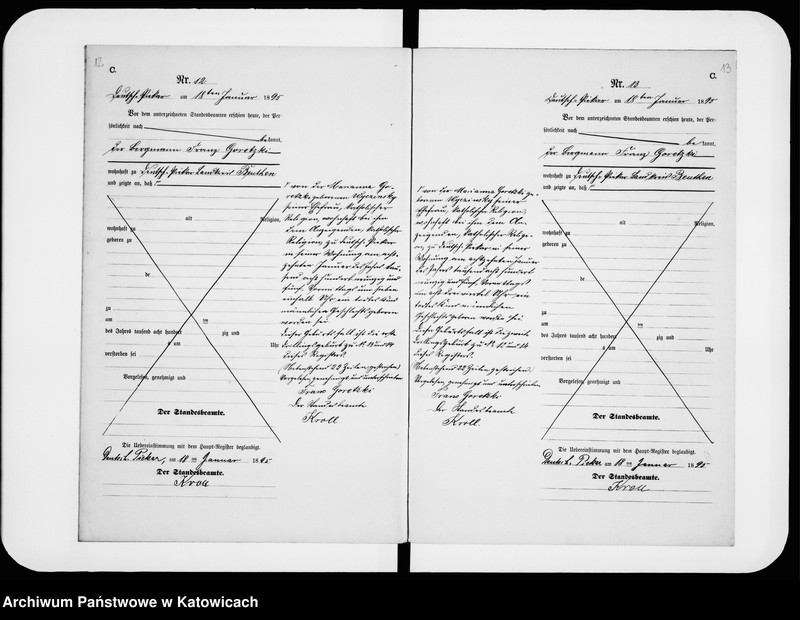 12
C.
Nr. 12
Deutsch-Piekar am 18ten Januar 1895
Vor dem unterzeichneten Standesbeamten erschien heute, der Per-
sönlichkeit nach
be kannt,
der Bergmann Franz Gorotzki
wohnhaft zu Deutsch-Piekar Landkreis Beuthen
und zeigte an, daß
alt Religion,
wohnhaft zu
geboren zu
de
zu
am ten
des Jahres tausend acht hundert zig und
um Uhr
verstorben sei
Vorgelesen, genehmigt und
Der Standesbeamte.
von der Marianna Go-
rotzki geborenen
seiner Ehefrau, katholischer
Religion, wohnhaft bei ihm
dem Anzeigenden, katholischer
Religion, zu Deutsch-Piekar
in seiner Wohnung am acht-
zehnten Januar des Jahres tau-
send acht hundert neunzig und
fünf, Vormittags um sieben
einhalb Uhr, ein todtes Kind
männlichen Geschlechts geboren
worden sei
dieser Geburtsfall ist die erste
Drillingsgeburt zu N. 13 und 14
dieses Registers.
Nebenstehend 22 Zeilen gestrichen.
Vorgelesen, genehmigt und unterschrieben
Franz Gorotzki
Der Standesbeamte
Kroll
Die Uebereinstimmung mit dem Haupt-Register beglaubigt.
Deutsch-Piekar, am 18 ten Januar 1895
Der Standesbeamte.
Kroll
13
C.
Nr. 13
Deutsch-Piekar am 18ten Januar 1895
Vor dem unterzeichneten Standesbeamten erschien heute, der Per-
sönlichkeit nach
be kannt,
der Bergmann Franz Gorotzki
wohnhaft zu Deutsch-Piekar Landkreis Beuthen
und zeigte an, daß
alt Religion,
wohnhaft zu
geboren zu
de
zu
am ten
des Jahres tausend acht hundert zig und
um Uhr
verstorben sei
Vorgelesen, genehmigt und
Der Standesbeamte.
von der Marianna Gorotzki ge-
borenen seiner
Ehefrau, katholischer Religion,
wohnhaft bei ihm dem An-
zeigenden, katholischer Religi-
on, zu Deutsch-Piekar in seiner
Wohnung am achtzehnten Januar
des Jahres tausend acht hundert
neunzig und fünf, Vormittags
um acht drei viertel Uhr, ein
todtes Kind männlichen
Geschlechts geboren worden sei
dieser Geburtsfall ist die zweite
Drillingsgeburt zu N. 12 und 14
dieses Registers.
Nebenstehend 22 Zeilen gestrichen.
Vorgelesen, genehmigt und unterschrieben
Franz Gorotzki
Der Standesbeamte
Kroll.
Die Uebereinstimmung mit dem Haupt-Register beglaubigt.
Deutsch-Piekar am 18 ten Januar 1895
Der Standesbeamte.
Kroll
Archiwum Państwowe w Katowicach